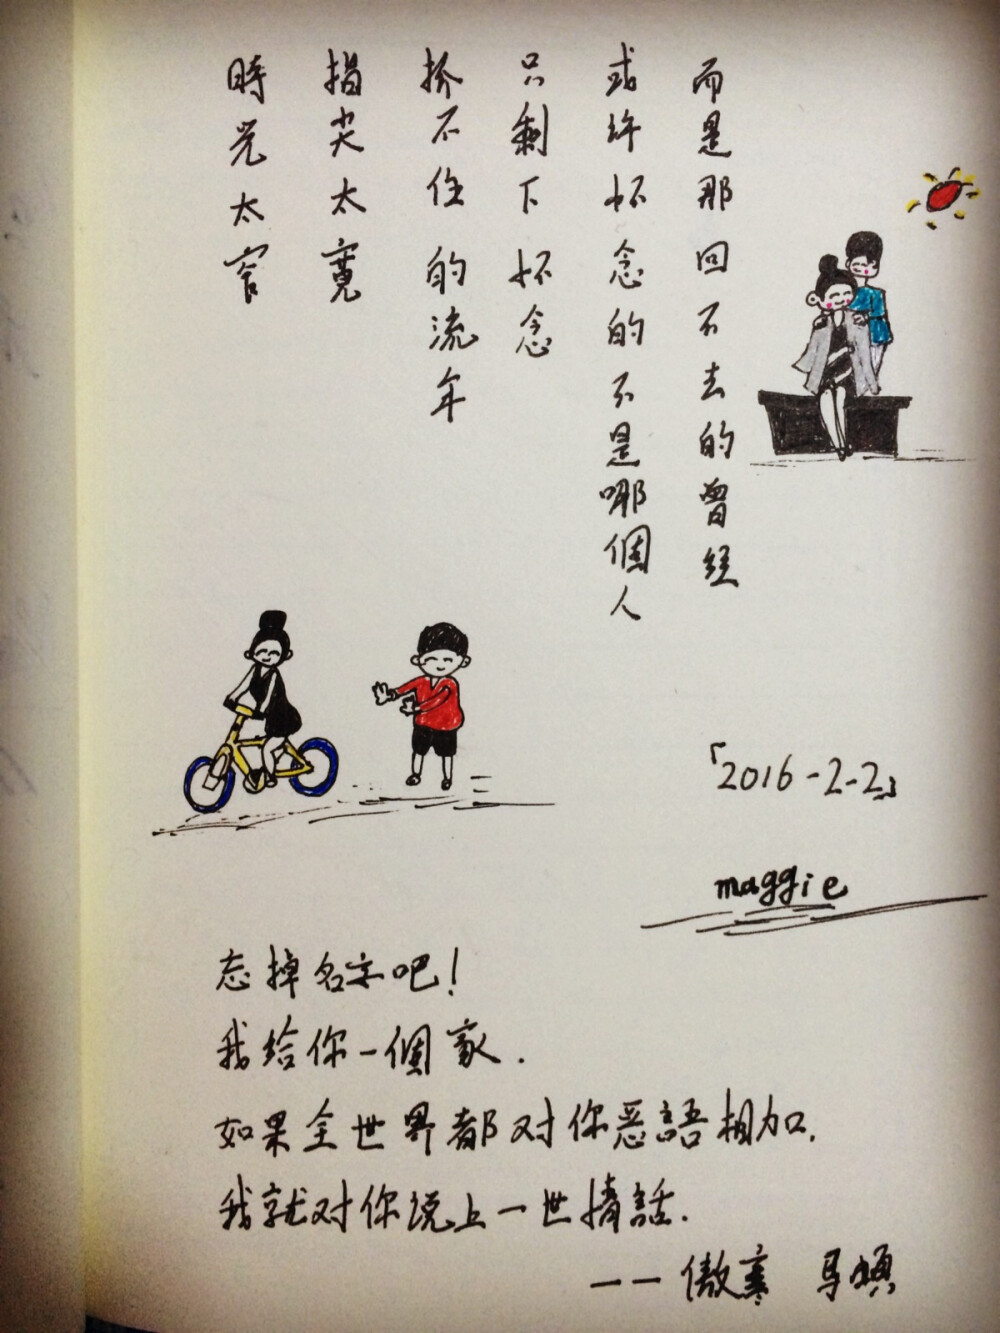 時光太窄
指尖太寬
抓不住的流年
只剩下怀念
或许怀念的不是哪個人
而是那回不去的曾经
「2016-2-2」
maggie
忘掉名字吧!
我给你一個家.
如果全世界都对你恶語相加.
我就对你说上一世情話.
——傲寒 马頔